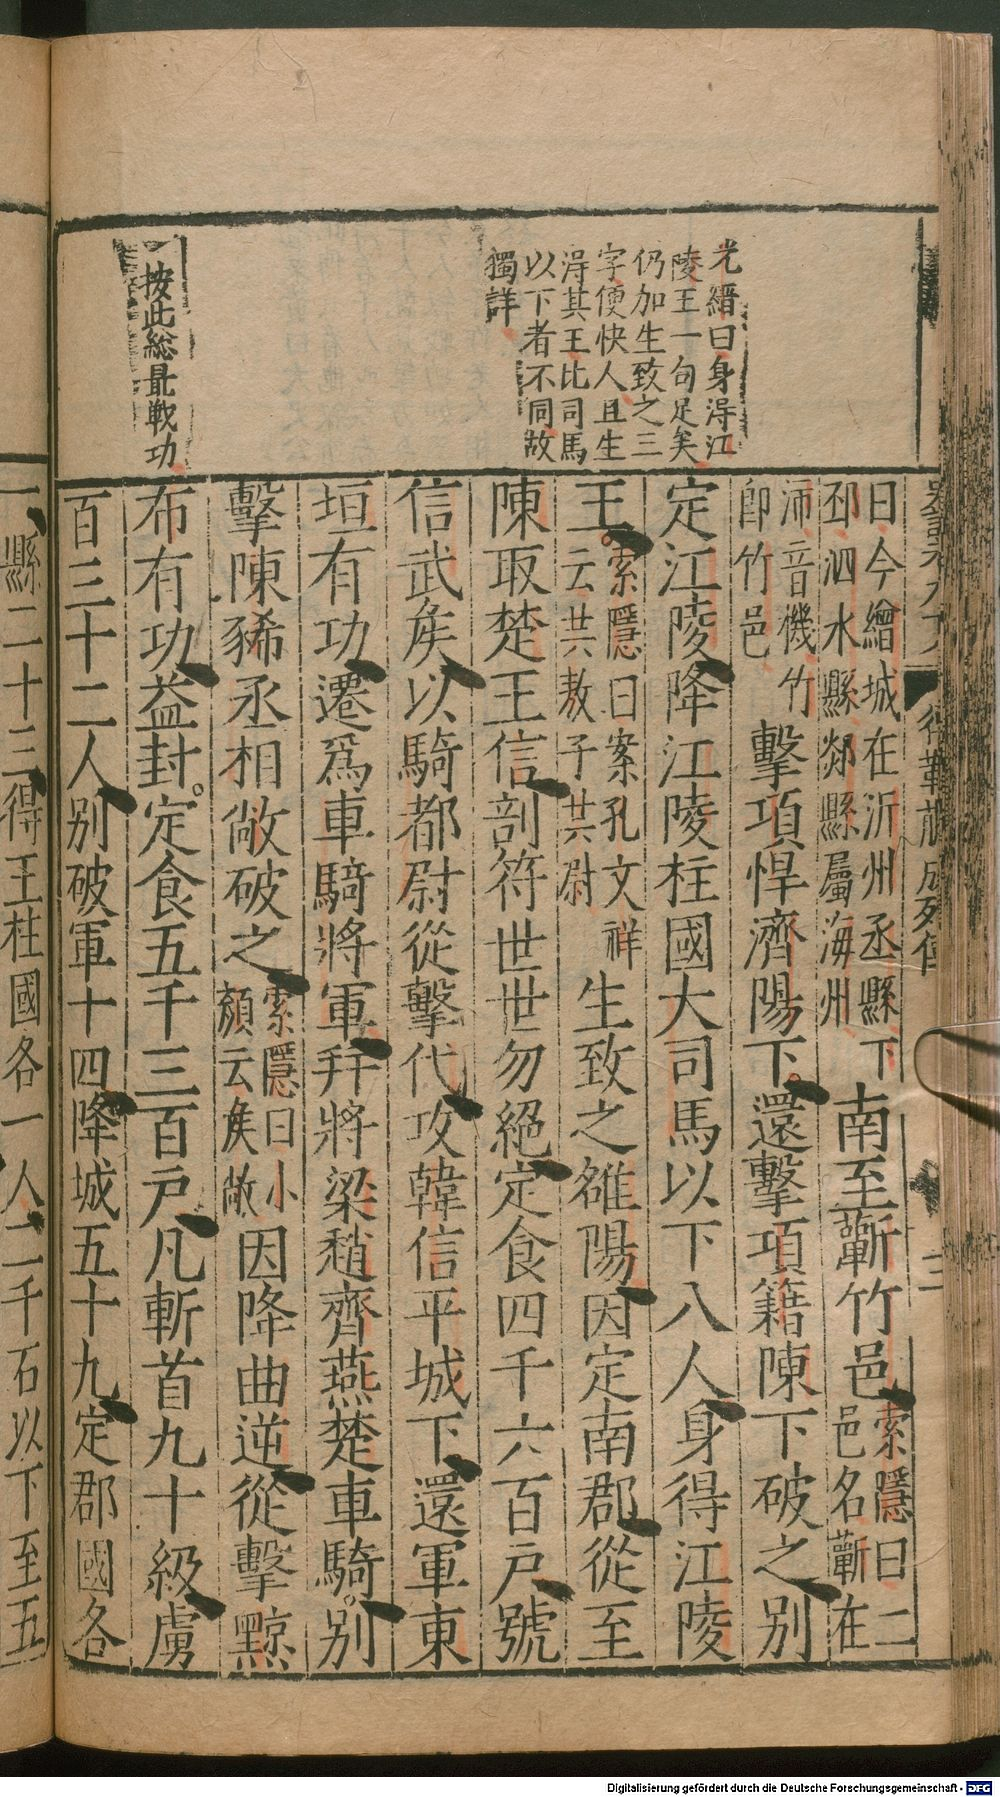 光縉曰身得江
陵王一句足矣
仍加生致之三
字便快人且生
得其王比司馬
以下者不同故
獨詳
按此總最戰功
傅靳蒯成列傳
三
曰今繒城在沂州丞縣下
邳泗水縣郯縣屬海州
南至蘄竹邑
索隱曰二
邑名蘄在
沛音機竹
卽竹邑
擊項悍濟陽下還擊項籍陳下破之別
定江陵降江陵柱國大司馬以下八人身得江陵
王
索隱曰案孔文祥
云共敖子共尉
生致之雒陽因定南郡從至
陳取楚王信剖符世世勿絕定食四千六百戶號
信武矦以騎都尉從擊代攻韓信平城下還軍東
垣有功遷爲車騎將軍幷將梁趙齊燕楚車騎別
擊陳豨丞相敞破之
索隱曰小
顏云矦敞
因降曲逆從擊黥
布有功益封定食五千三百戶凡斬首九十級虜
百三十二人別破軍十四降城五十九定郡國各
一縣二十三得王柱國各一人二千石以下至五
Digitalisierung gefördert durch die Deutsche Forschungsgemeinschaft - DFG